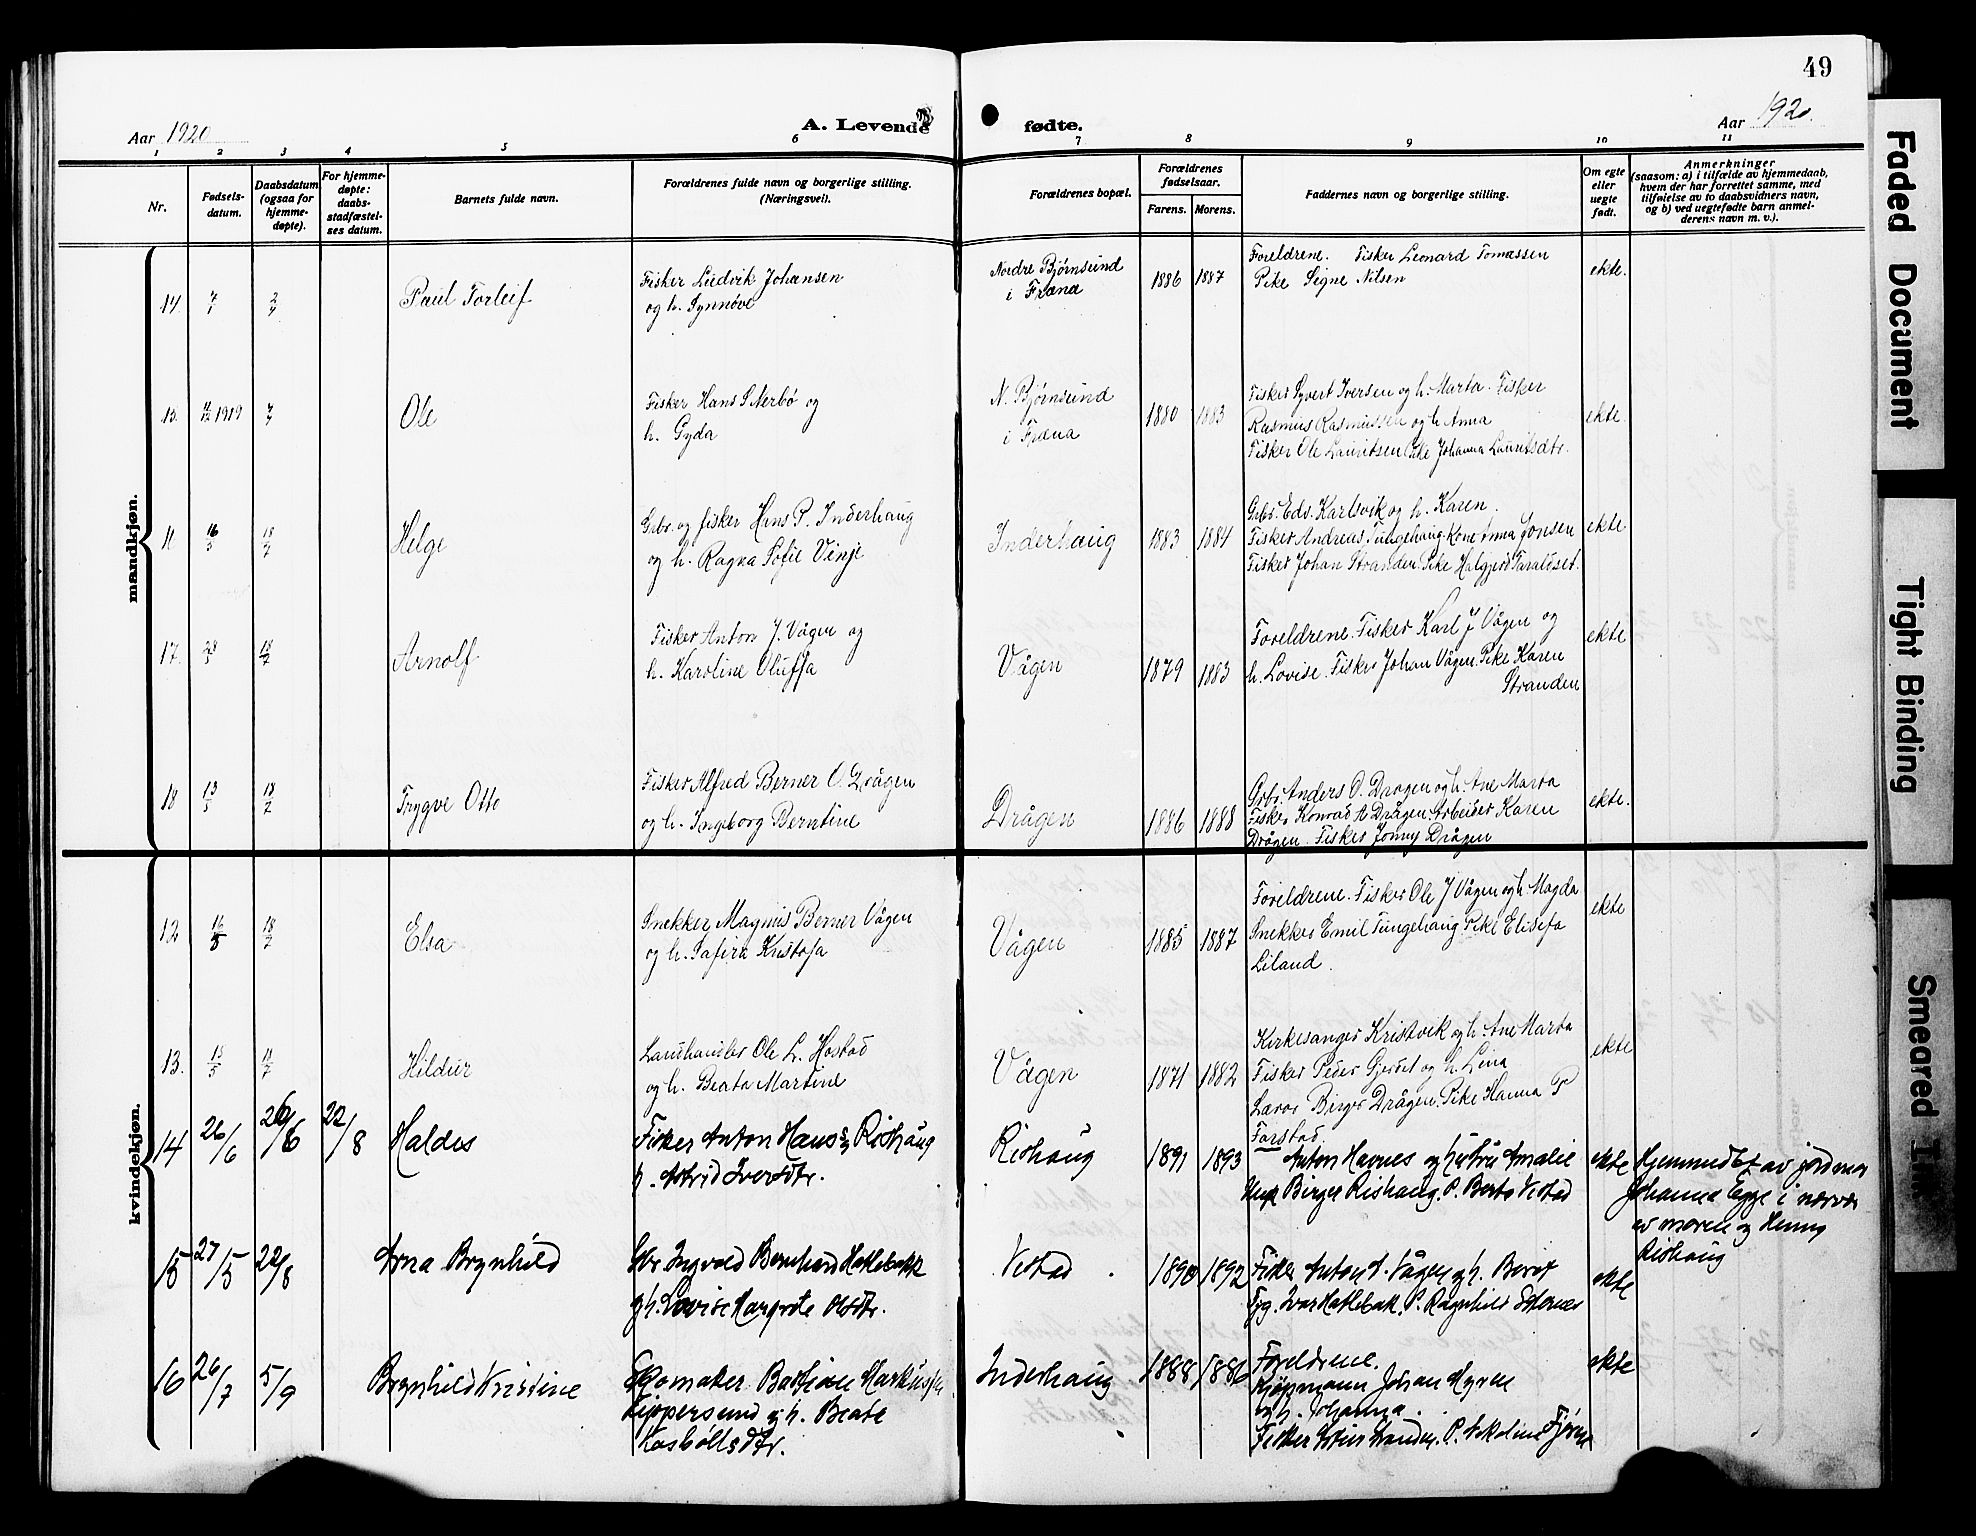 49
Aar 1920
A. Levende fødte.
Aar 1920.
1 2 3 4 5 6 7 8 9 10 11
Nr.
Fødsels-
datum.
Daabsdatum
(ogsaa for
hjemme-
døpte).
For hjemme-
døpte:
daabs-
stadfæstel-
ses datum.
Barnets fulde navn.
Forældrenes fulde navn og borgerlige stilling.
(Næringsvei).
Forældrenes bopæl.
Forældrenes
fødselsaar.
Farens. Morens.
Faddernes navn og borgerlige stilling.
Om egte
eller
uegte
født.
Anmerkninger
(saasom: a) i tilfælde av hjemmedaab,
hvem der har forrettet samme, med
tilføielse av to daabsvidners navn,
og b) ved uegtefødte barn anmel-
derens navn m. v.).
mandkjøn.
14
Paul Torleif
Fisker Ludvik Johansen
og h. Synnøve
Nordre Bjørnsund
i Fræna
1886 1887
Foreldrene. Fisker Leonard Tomassen
Pike Signe Nilsen
ekte.
15. 1919
Ole
Fisker Hans S Nerbø og
h. Gyda
N. Bjørnsund
i Fræna
1880 1883
Fisker Syvert Iversen og h. Marta. Fisker
Rasmus Rasmussen og h Anna
Fisker Ole Lauritsen Pike Johanna Lauritsdtr.
ekte.
16/5 18/7
Helge
Grbr. og fisker Hans P. Inderhaug
og h. Ragna Sofie Vinje
Inderhaug
1883 1884
Grbr. Eds. Karlsvik og h. Karen.
Fisker Andreas Tungehaug. Kone Anna Jonsen
Fisker Johan Stranden. Pike Halgjerd Taraldset.
ekte
17. 28/5 18/7
Arnolf
Fisker Anton J. Vågen og
h. Karoline Oluffa
Vågen
1879 1883
Foreldrene. Fisker Karl J Vågen og
h. Lovise. Fisker Johan Vågen. Pike Karen
Stranden
ekte
18 13/5 18/7
Trygve Otto
Fisker Alfred Berner O. Drågen
og h. Ingeborg Berntine
Drågen
1886 1888
Grbr. Anders O. Drågen og h. Ane Marta
Fisker Konrad A Drågen. Arbeider Karen
Drågen. Fisker Jonny Drågen
ekte.
kvindekjøn.
12 18/7
Elsa
Snekker Magnus Berner Vågen
og h. Safira Kristofa
Vågen
1885 1887
Foreldrene. Fisker Ole J Vågen og h Magda
Snekker Emil Tungehaug Pike Elisefa
Liland.
ekte
13. 15/5 18/7
Hildur
Landhandler Ole L. Hostad
og h. Beata Martine
Vågen
1871 1882
Kirkesanger Kristvik og h. Ane Marta
Fisker Peder Gjerset og h. Lina
Lærer Birger Drågen. Pike Hanna P
Farstad.
ekte
14 26/6 26/6 22/8
Haldis
Fisker Anton Hans. Rishaug
h. Astrid Iversdtr.
Rishaug
1891 1893
Anton Havnes og hustru Amalie
Ung. Birger Rishaug. P. Berta Vestad
ekte
Hjemmedøbt av jordmor
Johanna Egge i nærvær
av moren og Henny
Rishaug
15 27/5 22/8
Arna Brynhild
Gbr. Ingvald Bernhard Haklebakk
og h. Lovise Margrete Olsdtr.
Vestad
1890 1892
Fisker Anton A. Vågen og h. Berit
Ug. Ivar Haklebak. P. Ragnhild
ekte
16 26/7 5/9
Brynhild Kristine
Skomaker Bastian Markus
og h. Beate
Inderhaug
1888 1886
Foreldrene.
Kjøpmann Johan Myren
og h. Johanna.
Fisker
ekte
Faded Document
Tight Binding
Smeared Ink